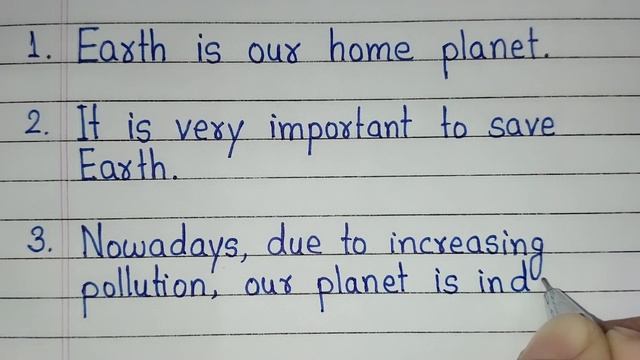 1. Earth is our home planet.
2. It is very important to save
Earth.
3. Nowadays, due to increasing
pollution, our planet is ind